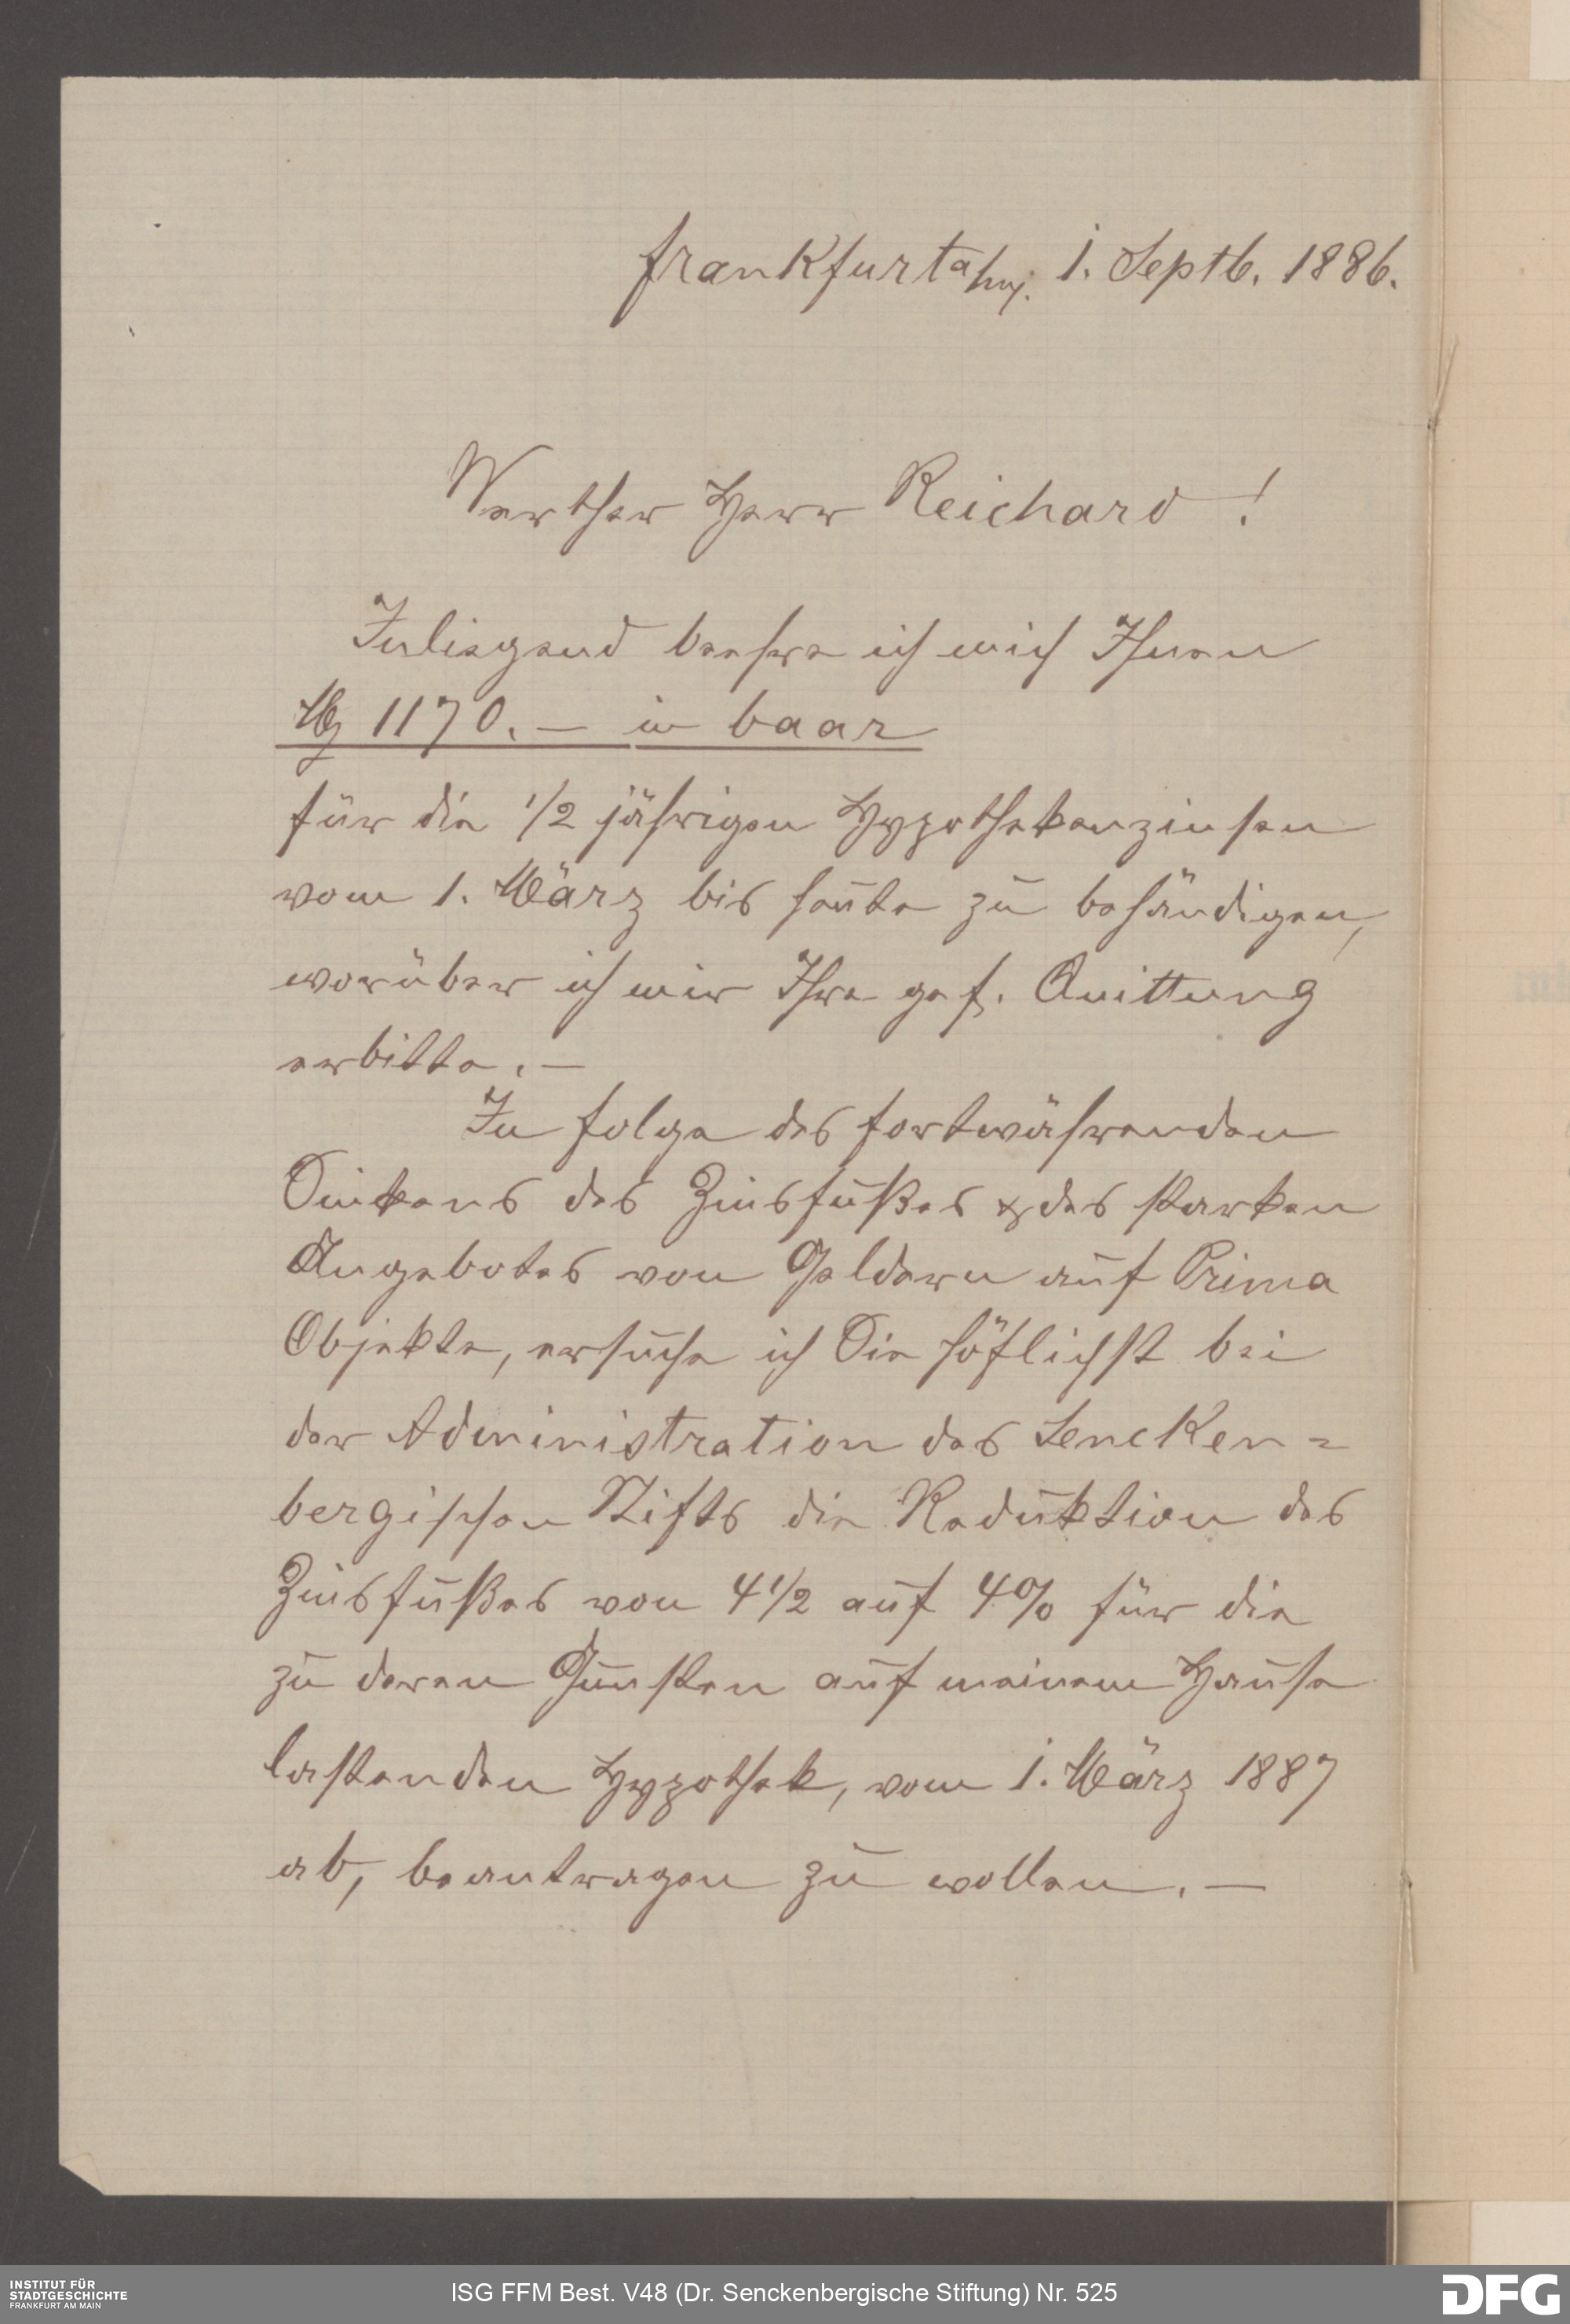 Frankfurt a/m, 1. Septb. 1886.
Werther Herr Reichard!
Inliegend beehre ich mich Ihnen
M 1170.— in baar
für die 1/2 jährigen Hypothekenzinsen
vom 1. März bis heute zu behändigen,
worüber ich mir Ihre gef. Quittung
erbitte.—
In folge des fortwährenden
Sinkens des Zinsfußes & des starken
Angebotes von Geldern auf Prima
Objekte, ersuche ich Sie höflichst bei
der Administration des Sencken=
bergischen Stifts die Reduktion des
Zinsfußes von 4 1/2 auf 4% für die
zu deren Gunsten auf meinem Hause
lastenden Hypothek, vom 1. März 1887
ab, beantragen zu wollen.—
INSTITUT FÜR
STADTGESCHICHTE
FRANKFURT AM MAIN
ISG FFM Best. V48 (Dr. Senckenbergische Stiftung) Nr. 525
DFG